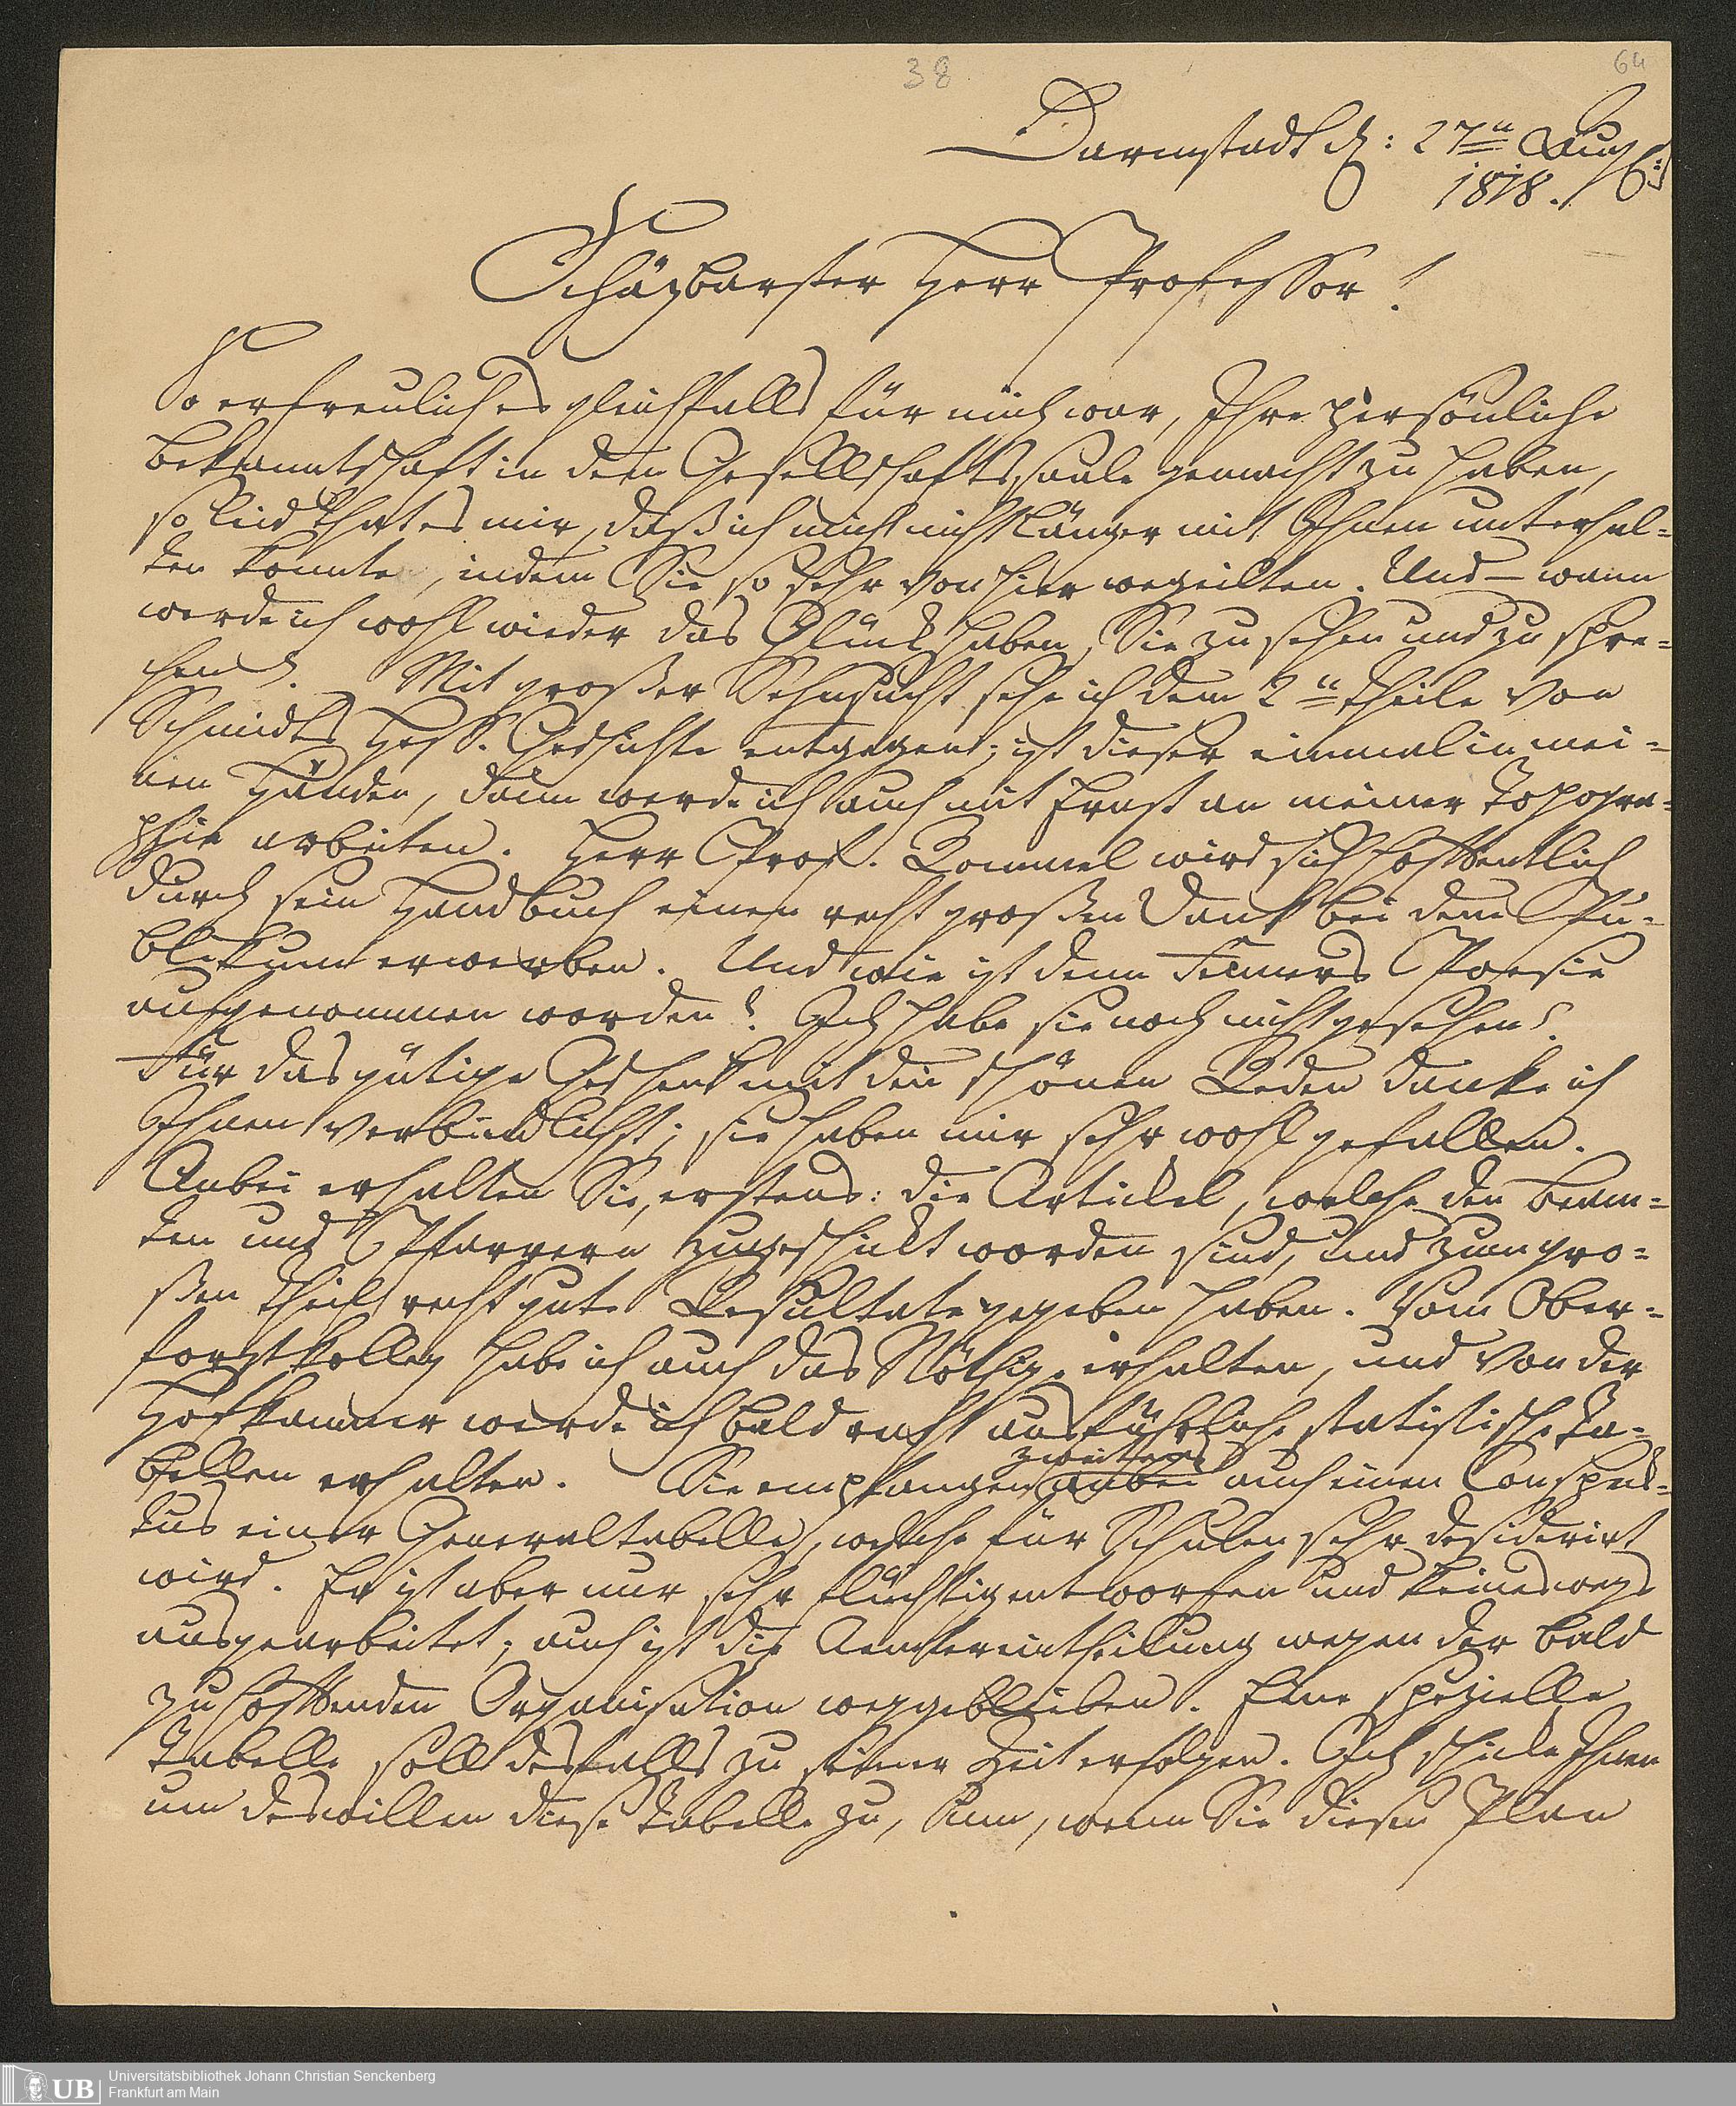 38
64
Darmstadt d: 27n Aug.
1818.
Schäzbarster Herr Professor!
So erfreulich es gleichfalls für mich war, Ihre persönliche
Bekanntschaft in dem Gesellschaftssaale gemacht zu haben,
so leid that es mir, daß ich mich nicht länger mit Ihnen unterhal-
ten konnte, indem Sie so sehr von hier wegeilten. Und – wann
werde ich wohl wieder das Glück haben, Sie zu sehen und zu spre-
chen? Mit großer Sehnsucht sehe ich dem 2n Theile von
Schmidts Hess. Geschichte entgegen; ist dieser einmal in mei-
nen Händen, dann werde ich auch mit Ernst an meiner Topogra-
phie arbeiten. Herr Prof. Rommel wird sich hoffentlich
durch sein Handbuch einen recht großen Dank bei dem Pu-
blikum erwerben. Und wie ist denn Poesie
aufgenommen worden? Ich habe sie noch nicht gesehen.
Für das gütige Geschenk mit den schönen Reden danke ich
Ihnen verbindlichst; sie haben mir sehr wohl gefallen.
Anbei erhalten Sie, erstens: die Artickel, welche den Beam-
ten und Pfarrern zugeschickt worden sind, und zum gro-
ßen Theil recht gute Resultate gegeben haben. Vom Ober-
forstkolleg habe ich auch das Nöthige erhalten, und von der
Hofkammer werde ich bald recht ausführliche statistische Ta-
bellen erhalten. Sie empfangen zweitens anbei auch einen Conspek-
tus einer Generaltabelle, welche für Schulen sehr desiderirt
wird. Er ist aber nur sehr flüchtig entworfen und keineswegs
ausgearbeitet; auch ist die Aemtereintheilung wegen der bald
zu hoffenden Organisation weggeblieben. Eine spezielle
Tabelle soll desfalls zu seiner Zeit erfolgen. Ich schicke Ihnen
um deswillen diese Tabelle zu, um, wenn Sie diesen Plan
UB
Universitätsbibliothek Johann Christian Senckenberg
Frankfurt am Main